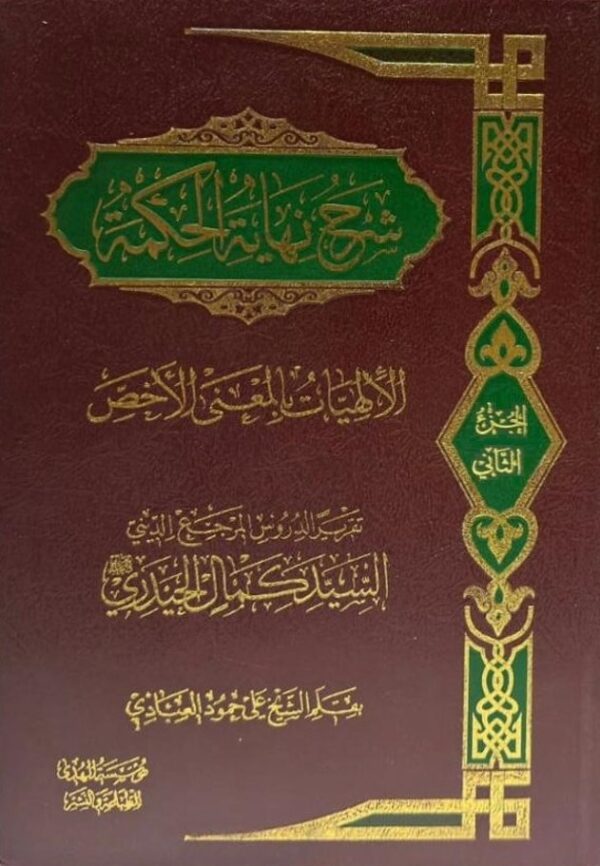 شرح نهاية الحكمة
الإلهيات بالمعنى الأخص
الجزء
الثاني
تقرير الدروس المرجع الديني
السيد كمال الحيدري
بقلم الشيخ علي حمود العبادي
مؤسسة الهدى
للطباعة والنشر